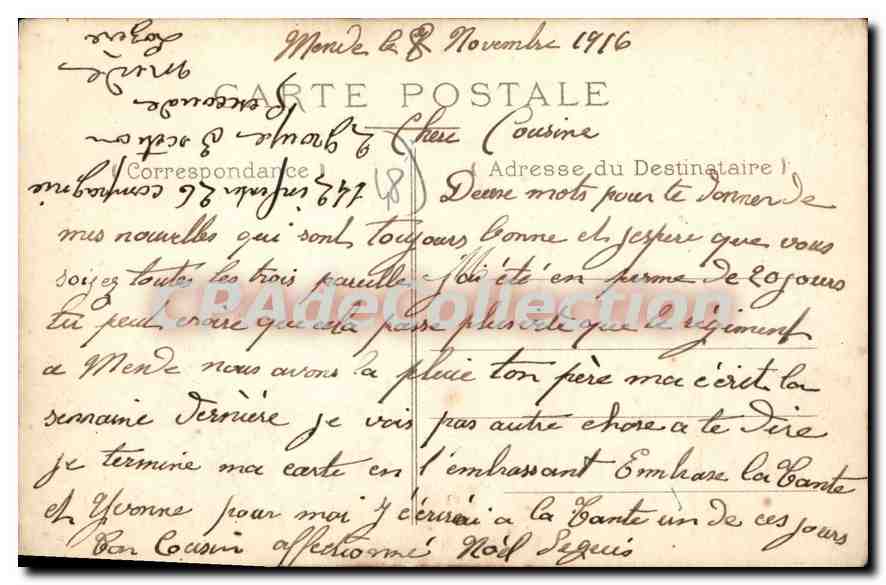 Mende le 8 Novembre 1916
CARTE POSTALE
Chere Cousine
(Correspondance)
(Adresse du Destinataire)
48
Deuse mots pour te donner de
mes nouvelles qui sont toujours bonne et j'espere que vous
soigez toutes les trois pareille J'ai été en perme de 20 jours
tu peut croire que cela passe plus vite que le régiment
a Mende nous avons la pluie ton père ma écrit la
semaine dernière je vois pas autre chose a te dire
je termine ma carte en t'embrassant Embrase la Tante
et Yvonne pour moi J'écrirai a la Tante un de ces jours
Ton Cousin affectionné Noël
142 infanter 26 compagnie
2 groupe 3 section
Mende
Lozere
CPAdeCollection